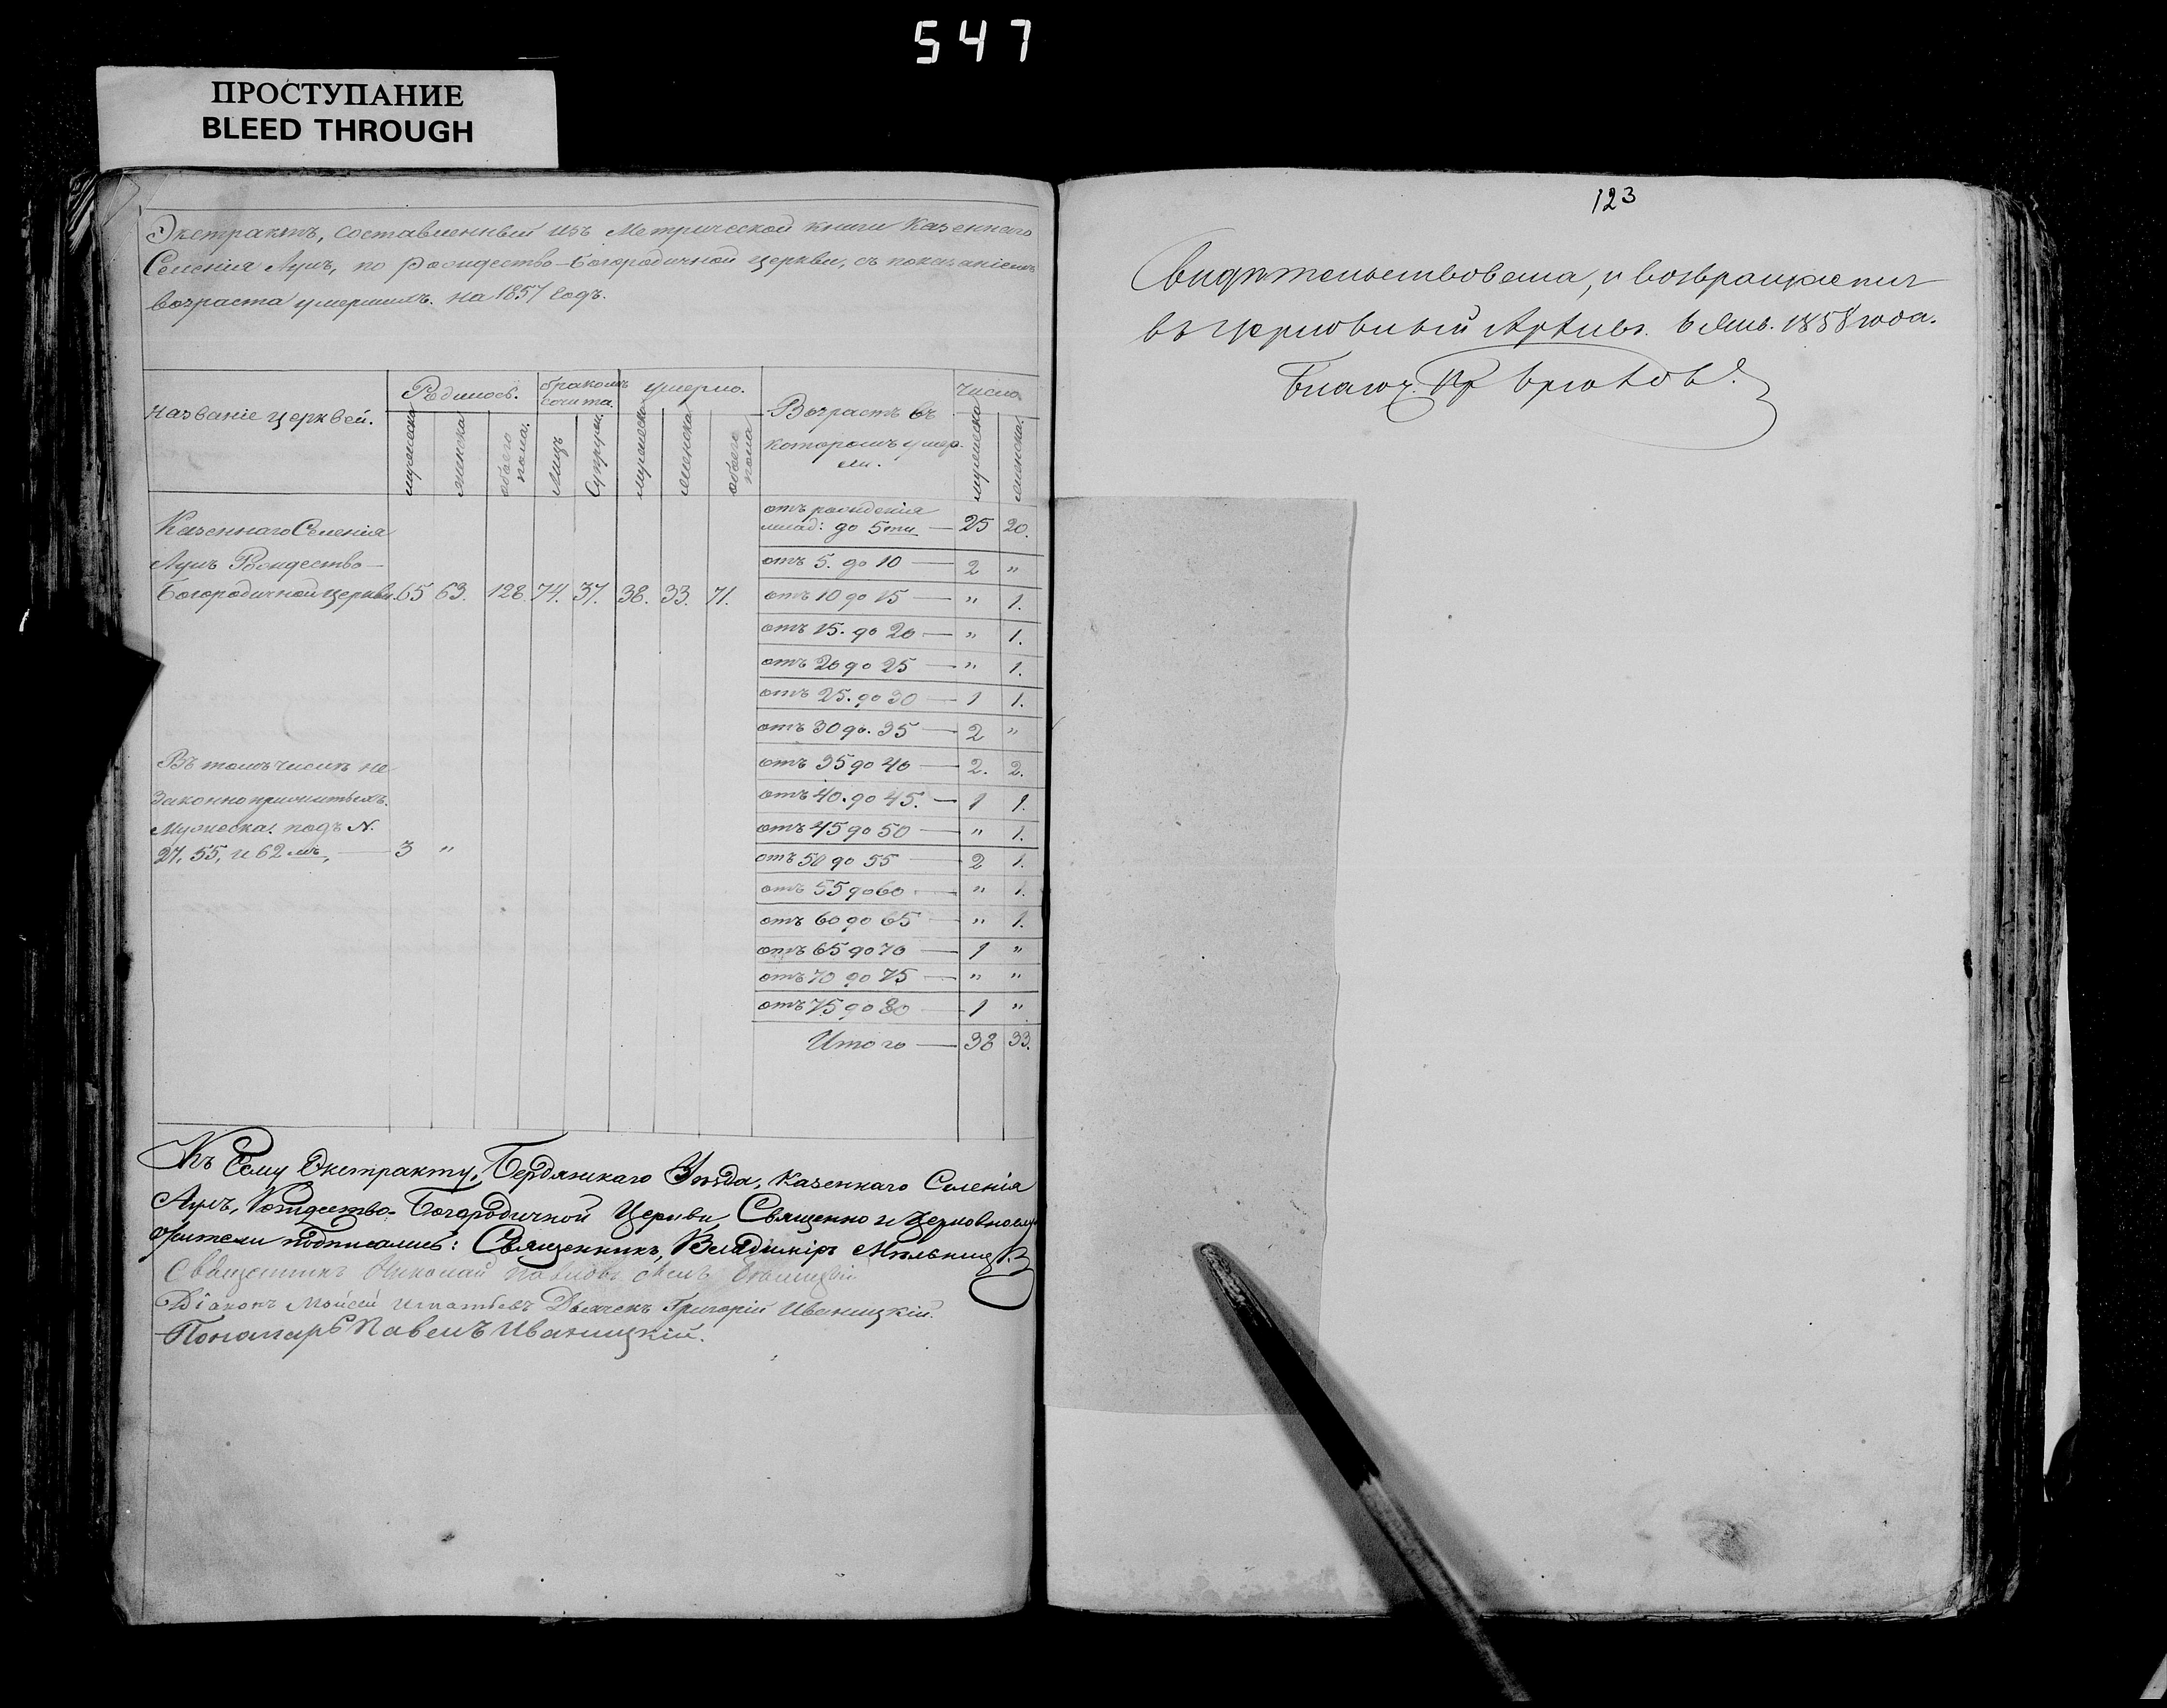 547
ПРОСТУПАНИЕ
BLEED THROUGH
Экстрактъ, составленный изъ Метрической книги Казеннаго
Селенія Аулъ, по Рождество-Богородичной церкви, съ показаніемъ
возраста умершихъ. на 1857 годъ.
Названіе церквей.
Родилось.
бракомъ
сочита.
умерло.
Возрастъ въ
которомъ умер-
ли.
Число.
мужеска
женска
обоего
пола.
Лицъ
Супруж.
мужеска
женска
обоего
пола
мужеска
женска.
Казеннаго Селенія
Аулъ Рождество-
Богородичной церкви. 65 63. 128. 74. 37. 38. 33. 71.
Въ томъ числѣ не
законно прижитыхъ.
Мужеска: подъ N.
27, 55, и 62 мъ, — 3 "
отъ рожденія
млад: до 5ти — 25 20.
отъ 5. до 10 — 2 "
отъ 10 до 15 — " 1.
отъ 15. до 20 — " 1.
отъ 20 до 25 — " 1.
отъ 25. до 30 — 1 1.
отъ 30 до. 35 — 2 "
отъ 35 до 40 — 2. 2.
отъ 40. до 45. — 1 1.
отъ 45 до 50 — " 1.
отъ 50 до 55 2 1.
отъ 55 до 60 — " 1.
отъ 60 до 65 — " 1.
отъ 65 до 70 — 1 "
отъ 70 до 75 — " "
отъ 75. до 80 — 1 "
Итого — 38 33.
Къ Сему Экстракту, Бердянскаго Уѣзда, Казеннаго Селенія
Аулъ, Рождество-Богородичной Церкви, Священно и церковнослу-
жители подписались: Священникъ, Владиміръ
Священникъ Николай
Діаконъ Мойсей Игнатьевъ Дьячекъ Григорій Иваницкій.
Пономарь Павелъ Иваницкій.
123
Свидѣтельствована, и возвращена
въ церковный Архивъ. 6 Янв. 1858 года.
Благоч. Пр